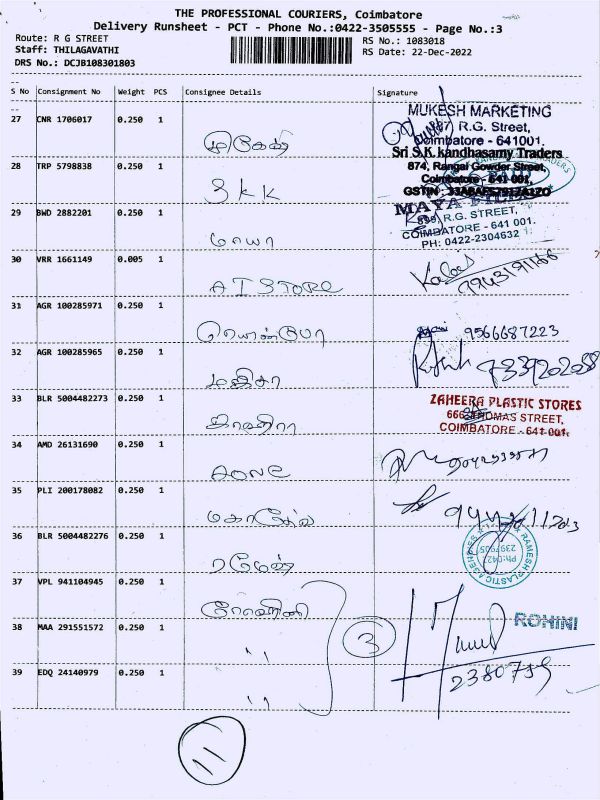 THE PROFESSIONAL COURIERS, Coimbatore
Delivery Runsheet - PCT - Phone No.:0422-3505555 - Page No.:3
Route: R G STREET
RS No.: 1083018
Staff: THILAGAVATHI
RS Date: 22-Dec-2022
DRS No.: DCJB108301803
S No Consignment No Weight PCS Consignee Details Signature
27 CNR 1706017 0.250 1 முகேஷ்
MUKESH MARKETING
R.G. Street,
Coimbatore - 641001.
Sri S.K. kandhasamy Traders
28 TRP 5798838 0.250 1 SKK
874, Rangai Gowder Street,
Coimbatore - 641 001.
GSTIN :
29 BWD 2882201 0.250 1 மாயா
MAYA
899, R.G. STREET,
COIMBATORE - 641 001.
PH: 0422-2304632
30 VRR 1661149 0.005 1 AI STORE
31 AGR 100285971 0.250 1
9566687223
32 AGR 100285965 0.250 1
33 BLR 5004482273 0.250 1
ZAHEERA PLASTIC STORES
THOMAS STREET,
COIMBATORE - 641 001.
34 AMD 26131690 0.250 1 AONE
35 PLI 200178082 0.250 1
36 BLR 5004482276 0.250 1 ரமேஷ்
RAMESH PLASTIC AGENCIES
37 VPL 941104945 0.250 1 ரோஹிணி
ROHINI
38 MAA 291551572 0.250 1 ''
3
39 EDQ 24140979 0.250 1 ''
2380759
11